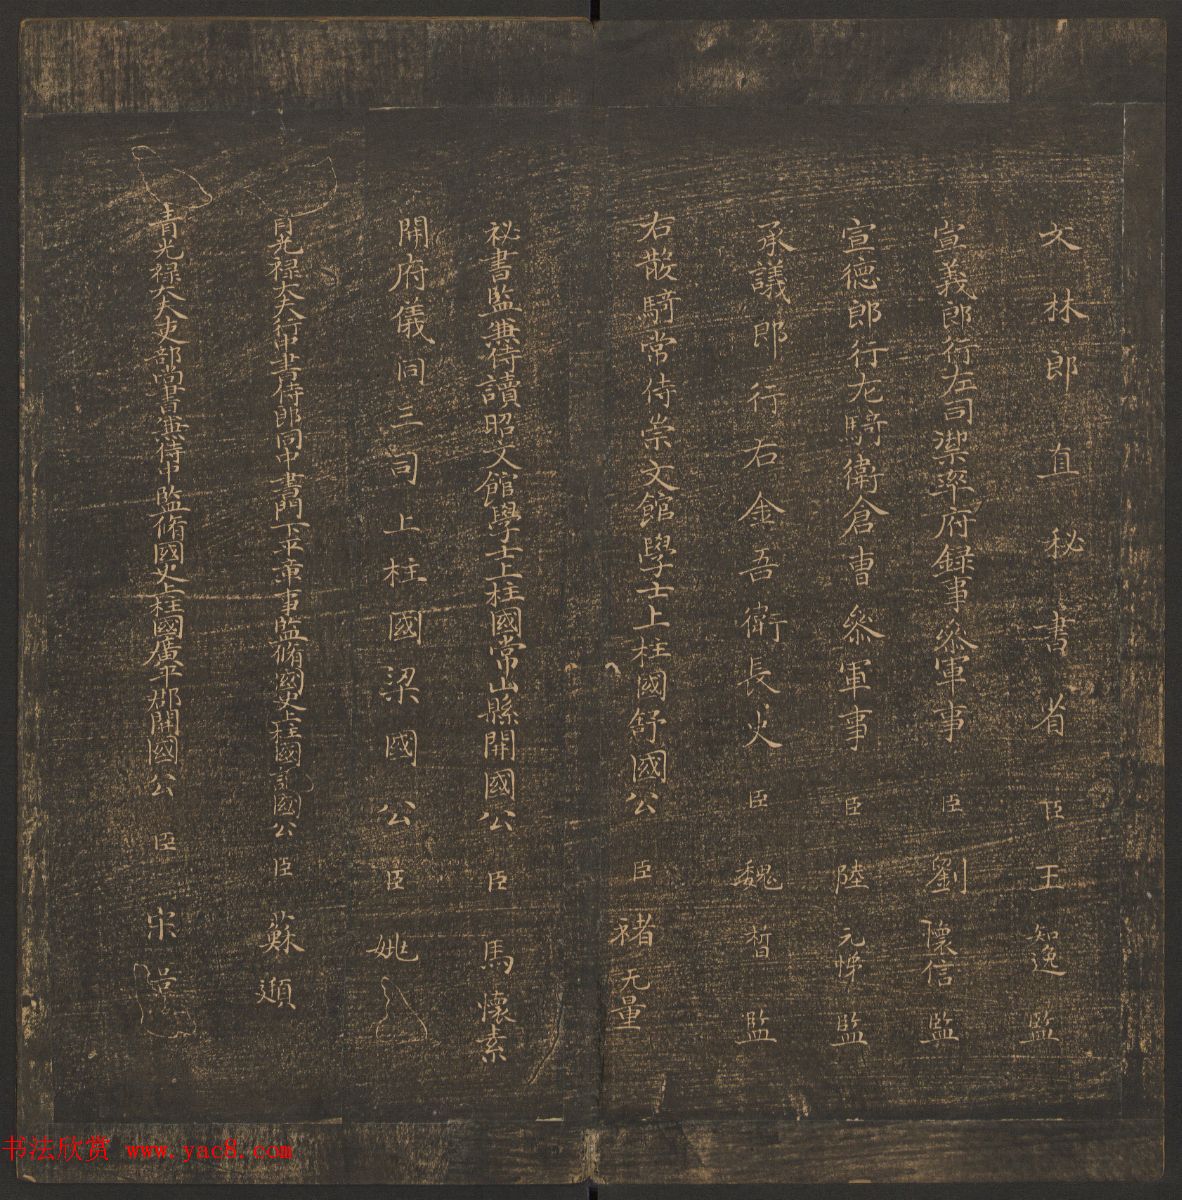 文林郎直秘書省臣王知逸監
宣義郎行左司禦率府録事叅軍事臣劉懷信監
宣德郎行左騎衛倉曹叅軍事臣陸元悌監
承議郎行右金吾衛長史臣魏晳監
右散騎常侍崇文館學士上柱國舒國公臣褚无量
祕書監兼侍讀昭文館學士上柱國常山縣開國公臣馬懷素
開府儀同三司上柱國梁國公臣姚
光禄大夫行中書侍郎同中書門下平章事監脩國史上柱國國公臣蘇頲
青光禄大夫吏部尚書兼侍中監脩國史上柱國廣平郡開國公臣宋
书法欣赏 www.yac8.com